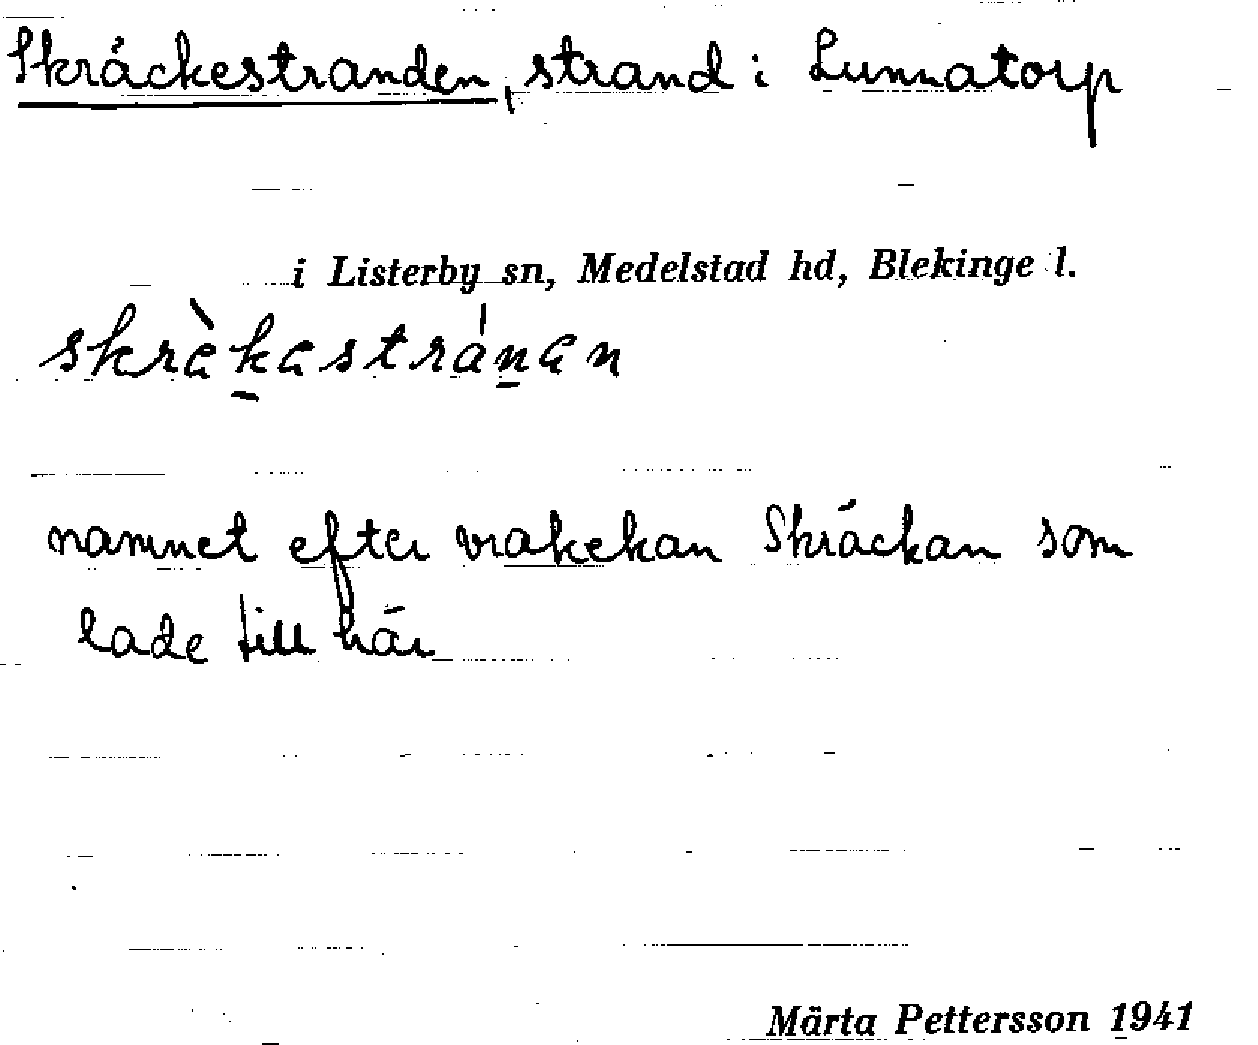 Skräckestranden, strand i Lunnatorp
i Listerby sn, Medelstad hd, Blekinge l.
skrὰk̠astrán̠an
namnet efter vrakekan Skräckan som
lade till här
Märta Pettersson 1941